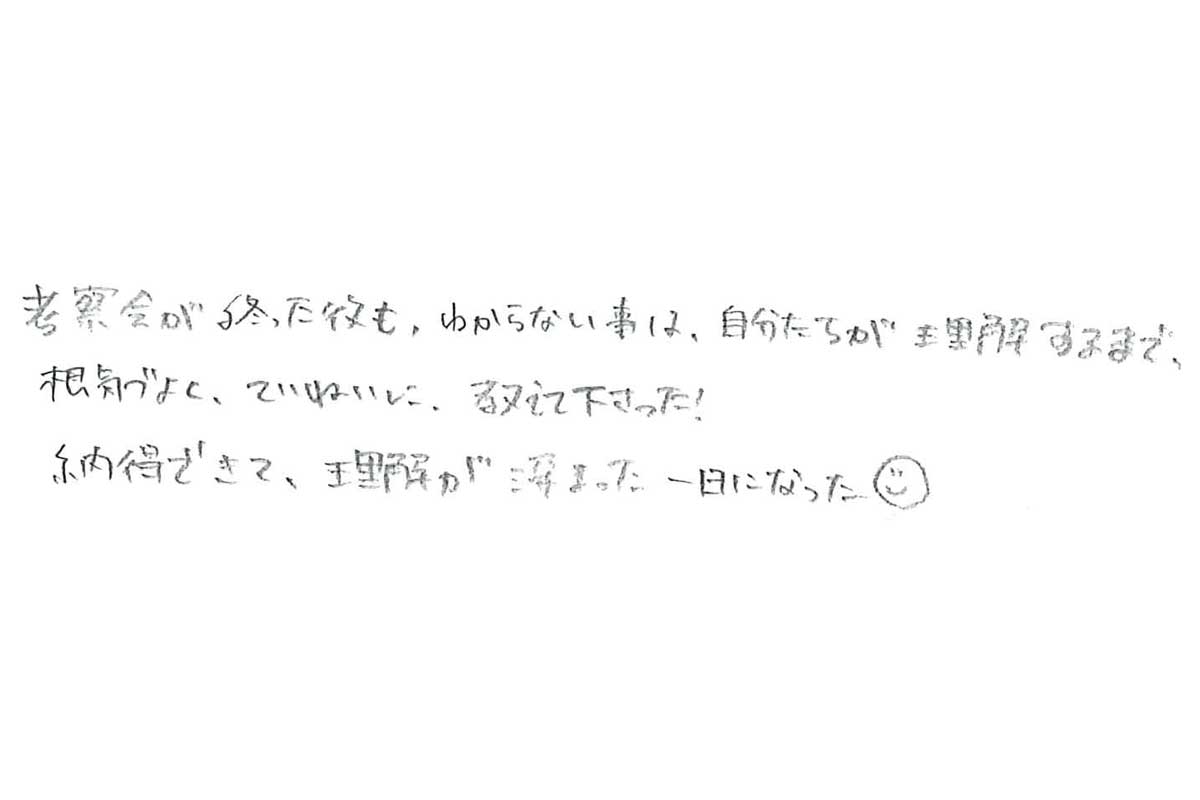 考察会が終った後も、わからない事は、自分たちが理解するまで、
根気づよく、ていねいに、教えて下さった!
納得できて、理解が深まった一日になった☺